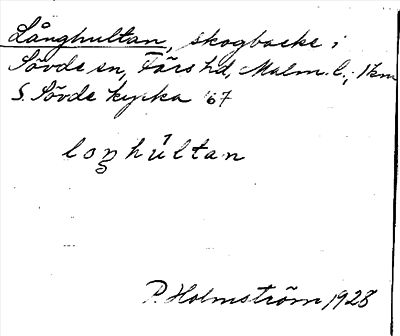 Långhultan, skogbacke i
Sövde sn, Färs hd, Malm. l., 1 km
S. Sövde kyrka '67
loŋhúltan
P. Holmström 1928